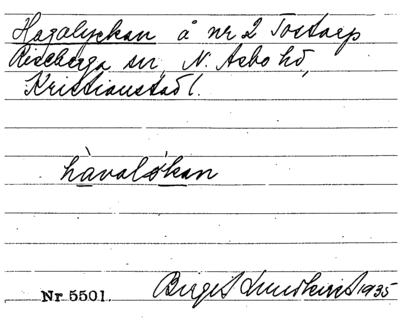 Hagalyckan å nr 2 Tostarp
Riseberga sn, N. Åsbo hd,
Kristianstad l.
hàvaløkan
Nr 5501. Birgit Lundkvist 1935